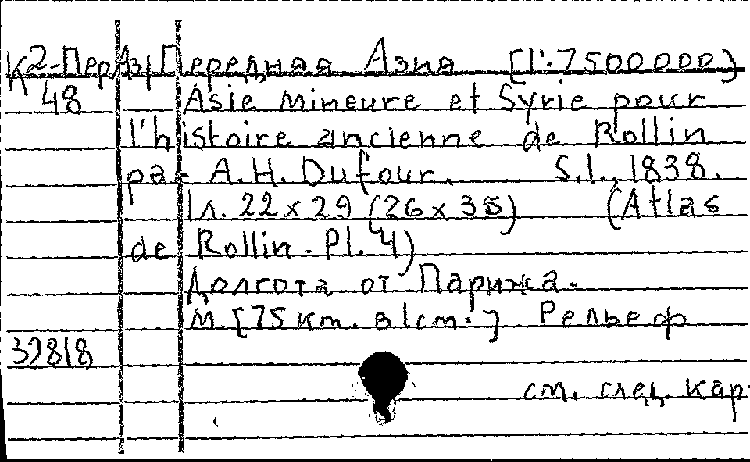 К2-Пер Аз/ Передняя Азия [1:7500000]
48 Asie Mineure et Syrie pour
l'histoire ancienne de Rollin
par A.H. Dufour. S.l., 1838.
1 л. 22 x 29 (26 x 38) (Atlas
de Rollin. Pl. 4)
Долгота от Парижа.
М. [75 км. в 1 см.] Рельеф
39818
см. след. кар